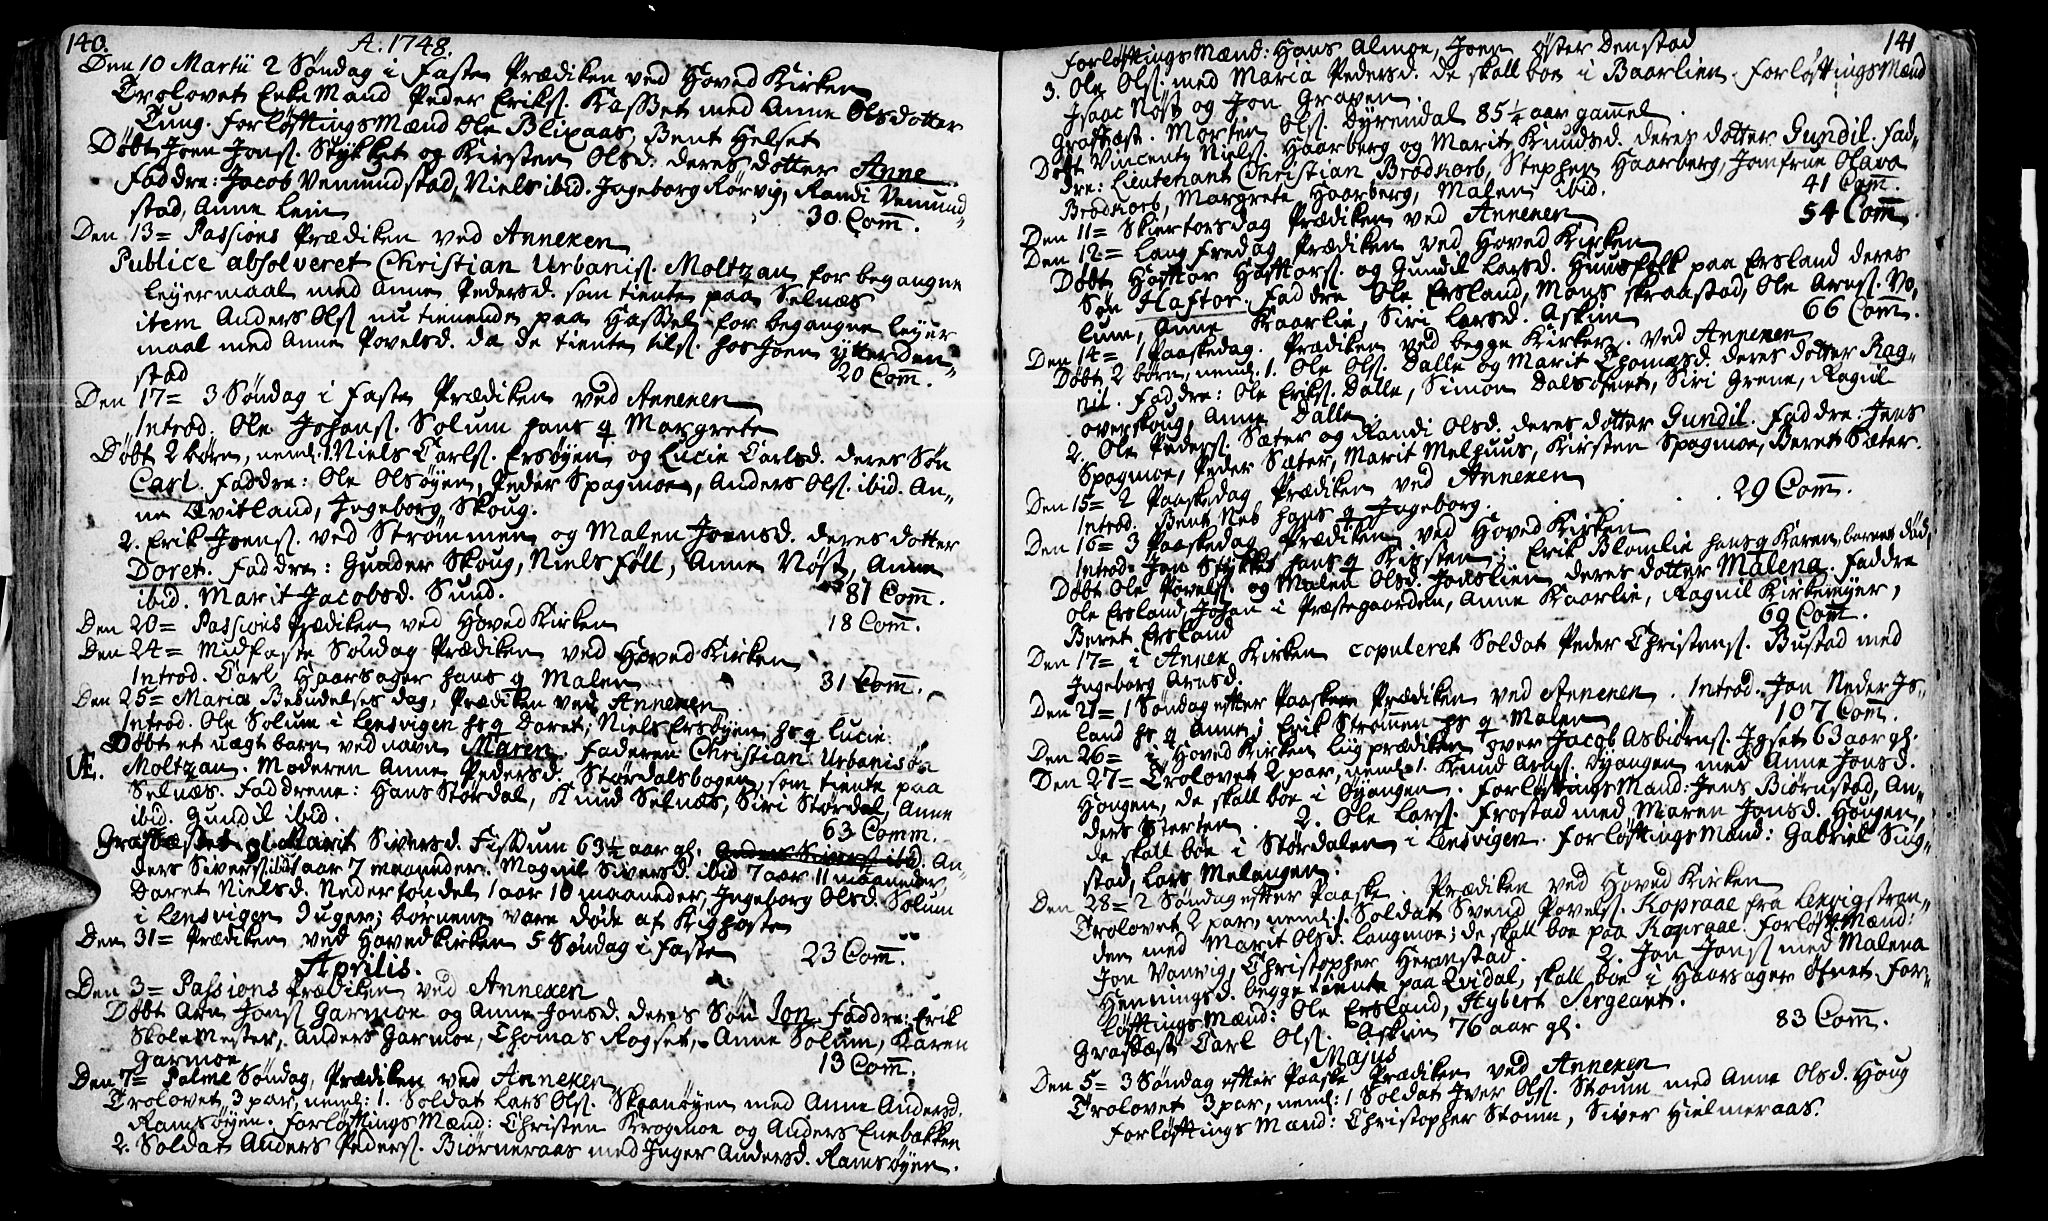 140.
A: 1748.
Den 10 Martii 2 Søndag i Faste Prædiken ved Hoved Kirken
Trolovet Enke Mand Peder Eriks. Kasset med Anne Olsdotter
Tung. Forløfttings Mænd Ole Blixaas, Bent Helset
Døbt Joen Jons. Stykket og Kirsten Olsd. deres dotter Anne
Faddre: Jacob Vemundstad, Niels ibid. Ingeborg Rørvig, Randi Vemund-
stad, Anne Lein 30 Com̅.
Den 13= Passions Prædiken ved Annexen
Publice absolveret Christian Urbanis. Moltzan for begangne
leyermaal med Anne Pedersd. som tiente paa Selnæs
item Anders Ols. nu tienende paa Hassel for begangne leyer
maal med Anne Povelsd. da de tiente tils. hos Joen ytter Den-
stad 20 Com̅.
Den 17= 3 Søndag i Faste Prædiken ved Annexen
Introd. Ole Johans. Solum hans q Margrete
Døbt 2 børn, neml: 1. Niels Carls. Ersøyen og Lucie Carlsd. deres Søn
Carl. Faddre: Ole Olsøyen, Peder Spagmoe, Anders Ols. ibid. An-
ne Qvitland, Ingeborg Skoug.
2. Erik Joens. ved Strømmen og Malen Joensd. deres dotter
Doret. Faddre: Gunder Skoug, Niels Føll, Anne Nøst, Anne
ibid. Marit Jacobsd. Sund. 81 Com̅.
Den 20= Passions Prædiken ved Hoved Kirken 18 Com̅.
Den 24= Midfaste Søndag Prædiken ved Hoved Kirken
Introd. Carl Haarsager hans q Malen 31 Com̅.
Den 25= Mariæ Bebudelses dag, Prædiken ved Annexen
Introd. Ole Solum i Lensvigen hs q Doret, Niels Ersøyen hs q Lucie
Døbt et uægt barn ved navn Maren. Faderen Christian Urbanisøn
Æ. Moltzan. Moderen Anne Pedersd. Størdalsbogen, som tiente paa
Selnæs. Faddrene: Hans Størdal, Knud Selnæs, Siri Størdal, Anne
ibid. Gundil ibid. 63 Comm.
Grafæstet Marit Siversd. Fissum 63½ aar gl. Anders Sivers. ibid. An-
ders Sivers. ibid 1 aar 7 maaneder. Magnil Siversd. ibid 7 aar 11 maaneder
Doret Nielsd. Nedertøndel 1 aar 10 maaneder, Ingeborg Olsd. Solum
i Lensvigen 3 uger; børnene vare døde af Kighoste
Den 31= Prædiken ved Hovedkirken 5 Søndag i Faste 23 Com̅.
Aprilis.
Den 3= Passions Prædiken ved Annexen
Døbt Arn Jons. Garmoe og Anne Jonsd. deres Søn Jon. Faddre: Erik
SkoleMester, Anders Garmoe, Thomas Rogset, Anne Solum, Karen
Garmoe 13 Com̅.
Den 7= Palme Søndag, Prædiken ved Annexen
Trolovet 3 par, neml: 1. Soldat Lars Ols. Skaanøyen med Anne Andersd.
Ramsøyen. Forløfttings Mænd: Christen Krogmoe og Anders Enebakken
2. Soldat Anders Peders. Biørneraas med Inger Andersd. Ramsøyen.
141
Forløfttings Mænd: Hans Almoe, Joen øster Denstad
3. Ole Ols. med Maria Pedersd. de skall boe i Baarlien. Forløfttings Mænd
Isaac Nøst og Jon Graven.
Graffæst. Morten Ols. Dyrendal 85¼ aar gammel.
Døbt Vincentz Niels. Haarberg og Marit Knudsd. deres dotter Gundil. Fad-
dre: Lieutenant Christian Brodkorb, Stephen Haarberg, Jomfrue Olava
Brodkorb, Margrete Haarberg, Malen ibid. 41 Com̅.
Den 11= Skiertorsdag Prædiken ved Annexen 54 Com̅
Den 12= Lang Fredag Prædiken ved Hoved Kirken
Døbt Hafftor Hafftors. og Gundil Larsd. Huusfolk paa Ersland deres
Søn Haftor. Faddre Ole Ersland, Mons Skraastad, Ole Arns. Vo-
lum, Anne Kaarlie, Siri Larsd. Askim 66 Com̅.
Den 14= 1 Paaskedag. Prædiken ved begge Kirker. Ved Annexen
Døbt 2 børn, neml: 1. Ole Ols. Dalle og Marit Thomasd. deres dotter Rag-
nil. Faddre: Ole Eriks. Dalle, Simon Dalsøfnet, Siri Grene, Ragnil
overskoug, Anne Dalle.
2. Ole Peders. Sæter og Randi Olsd. deres dotter Gundil. Faddre: Jens
Spagmoe, Peder Sæter, Marit Melhuus, Kirsten Spagmoe, Beret Sæter.
Den 15= 2 Paaskedag Prædiken ved Annexen 29 Com̅.
Introd. Bent Nes hans q Ingeborg.
Den 16= 3 Paaskedag Prædiken ved Hoved Kirken
Introd. Jon Stykket hans q Kirsten; Erik Blomlie hans q Karen, barnet død,
Døbt Ole Povels. og Malen Olsd. Joeslien deres dotter Malena. Faddre
Ole Ersland, Johan i Præstegaarden, Anne Kaarlie, Ragnil Kirkemyer,
Beret Ersland 69 Com̅.
Den 17= i Annex Kirken copuleret Soldat Peder Christens. Bustad med
Ingeborg Arnsd.
Den 21= 1 Søndag efter Paasken Prædiken ved Annexen. Introd. Jon Neder Is-
land hs q Anne; Erik Strømen hs q Malen 107 Com̅.
Den 26= i Hoved Kirken liigprædiken over Jacob Asbiørns. Igset 63 aar gl.
Den 27= Trolovet 2 par, neml: 1. Knud Arns. Øyangen med Anne Jonsd.
Hongen, de skall boe i Øyangen. Forløfttings Mænd: Jens Biørnstad, An-
ders Sterten. 2. Ole Lars. Frostad med Maren Jonsd. Hongen,
de skall boe i Størdalen i Lensvigen. Forløfttings Mænd: Gabriel Siig-
stad, Lars Melangen.
Den 28= 2 Søndag efter Paaske. Prædiken ved Hoved Kirken
Trolovet 2 par, neml: 1. Soldat Svend Povels. Kopraae fra Lexvigstran-
den med Marit Olsd. Langmoe; de skall boe paa Kopraae. Forløft. Mænd:
Jon Vanvig, Christopher Hermstad. 2. Jon Jons. med Malena
Henningsd. begge tiente paa Qvidal, skall boe i Haarsager Øfnet. For-
løfttings Mænd: Ole Ersland, Hybert Sergeant.
Grafæst Carl Ols. Askim 76 aar gl. 83 Com̅.
Majus
Den 5= 3 Søndag efter Paaske Prædiken ved Annexen
Trolovet 3 par, neml: 1 Soldat Iver Ols. Stoum med Anne Olsd. Houg
Forløfttings Mænd: Christopher Stoum, Siver Hielmeraas.